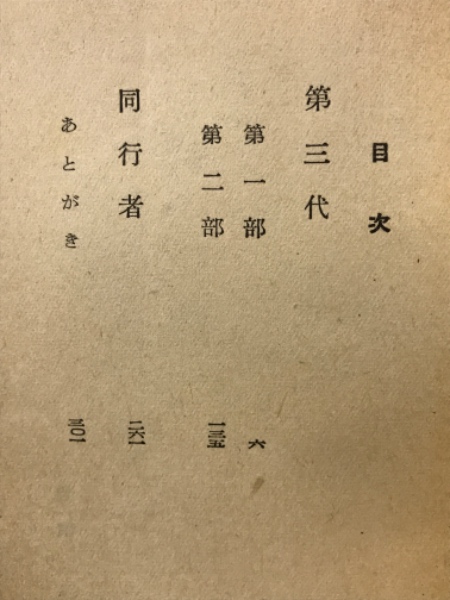 目次
第三代
第一部 六
第二部 一三五
同行者 二六一
あとがき 三〇一